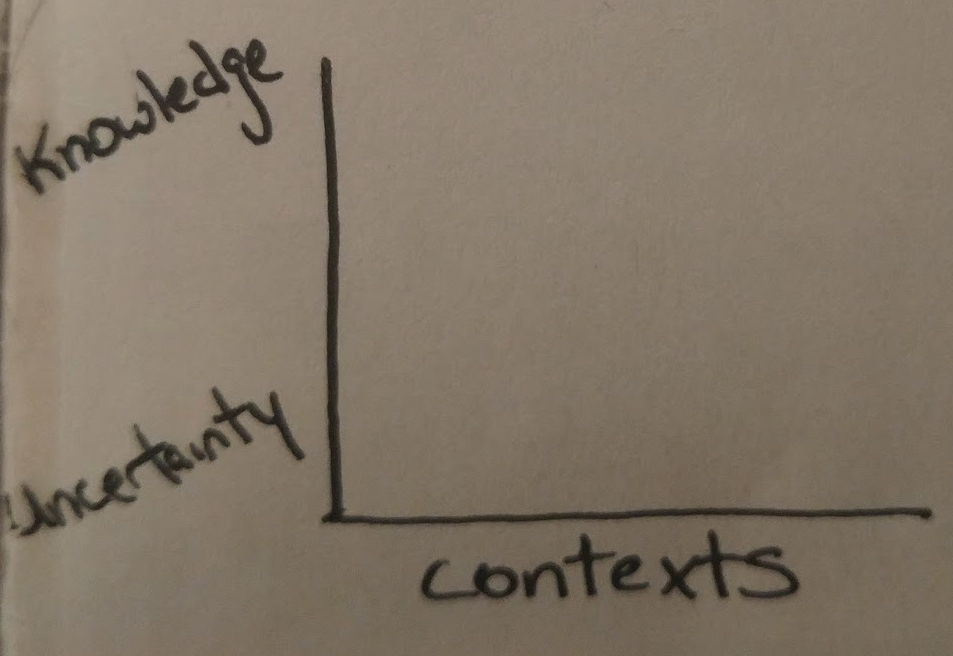 Knowledge
Uncertainty
contexts